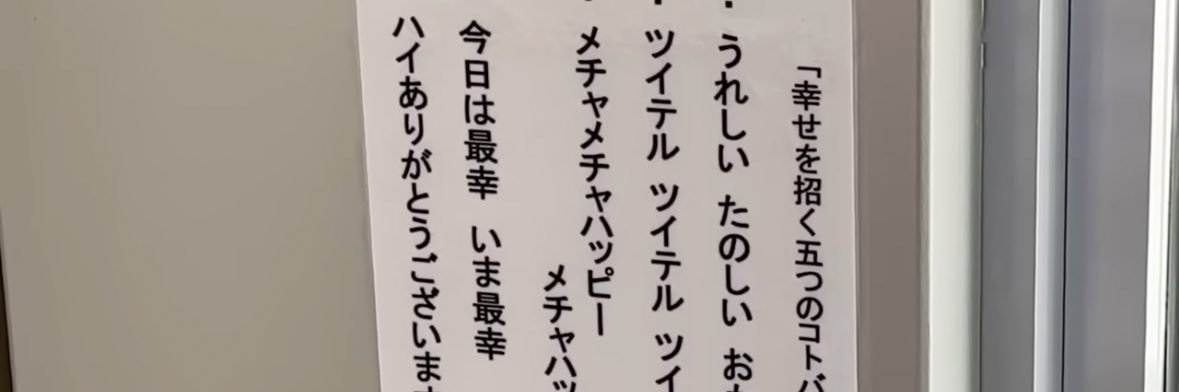 「幸せを招く五つのコトバ
・うれしい たのしい
・ツイテル ツイテル
・メチャメチャハッピー
メチャハッ
今日は最幸 いま最幸
ハイありがとうございま